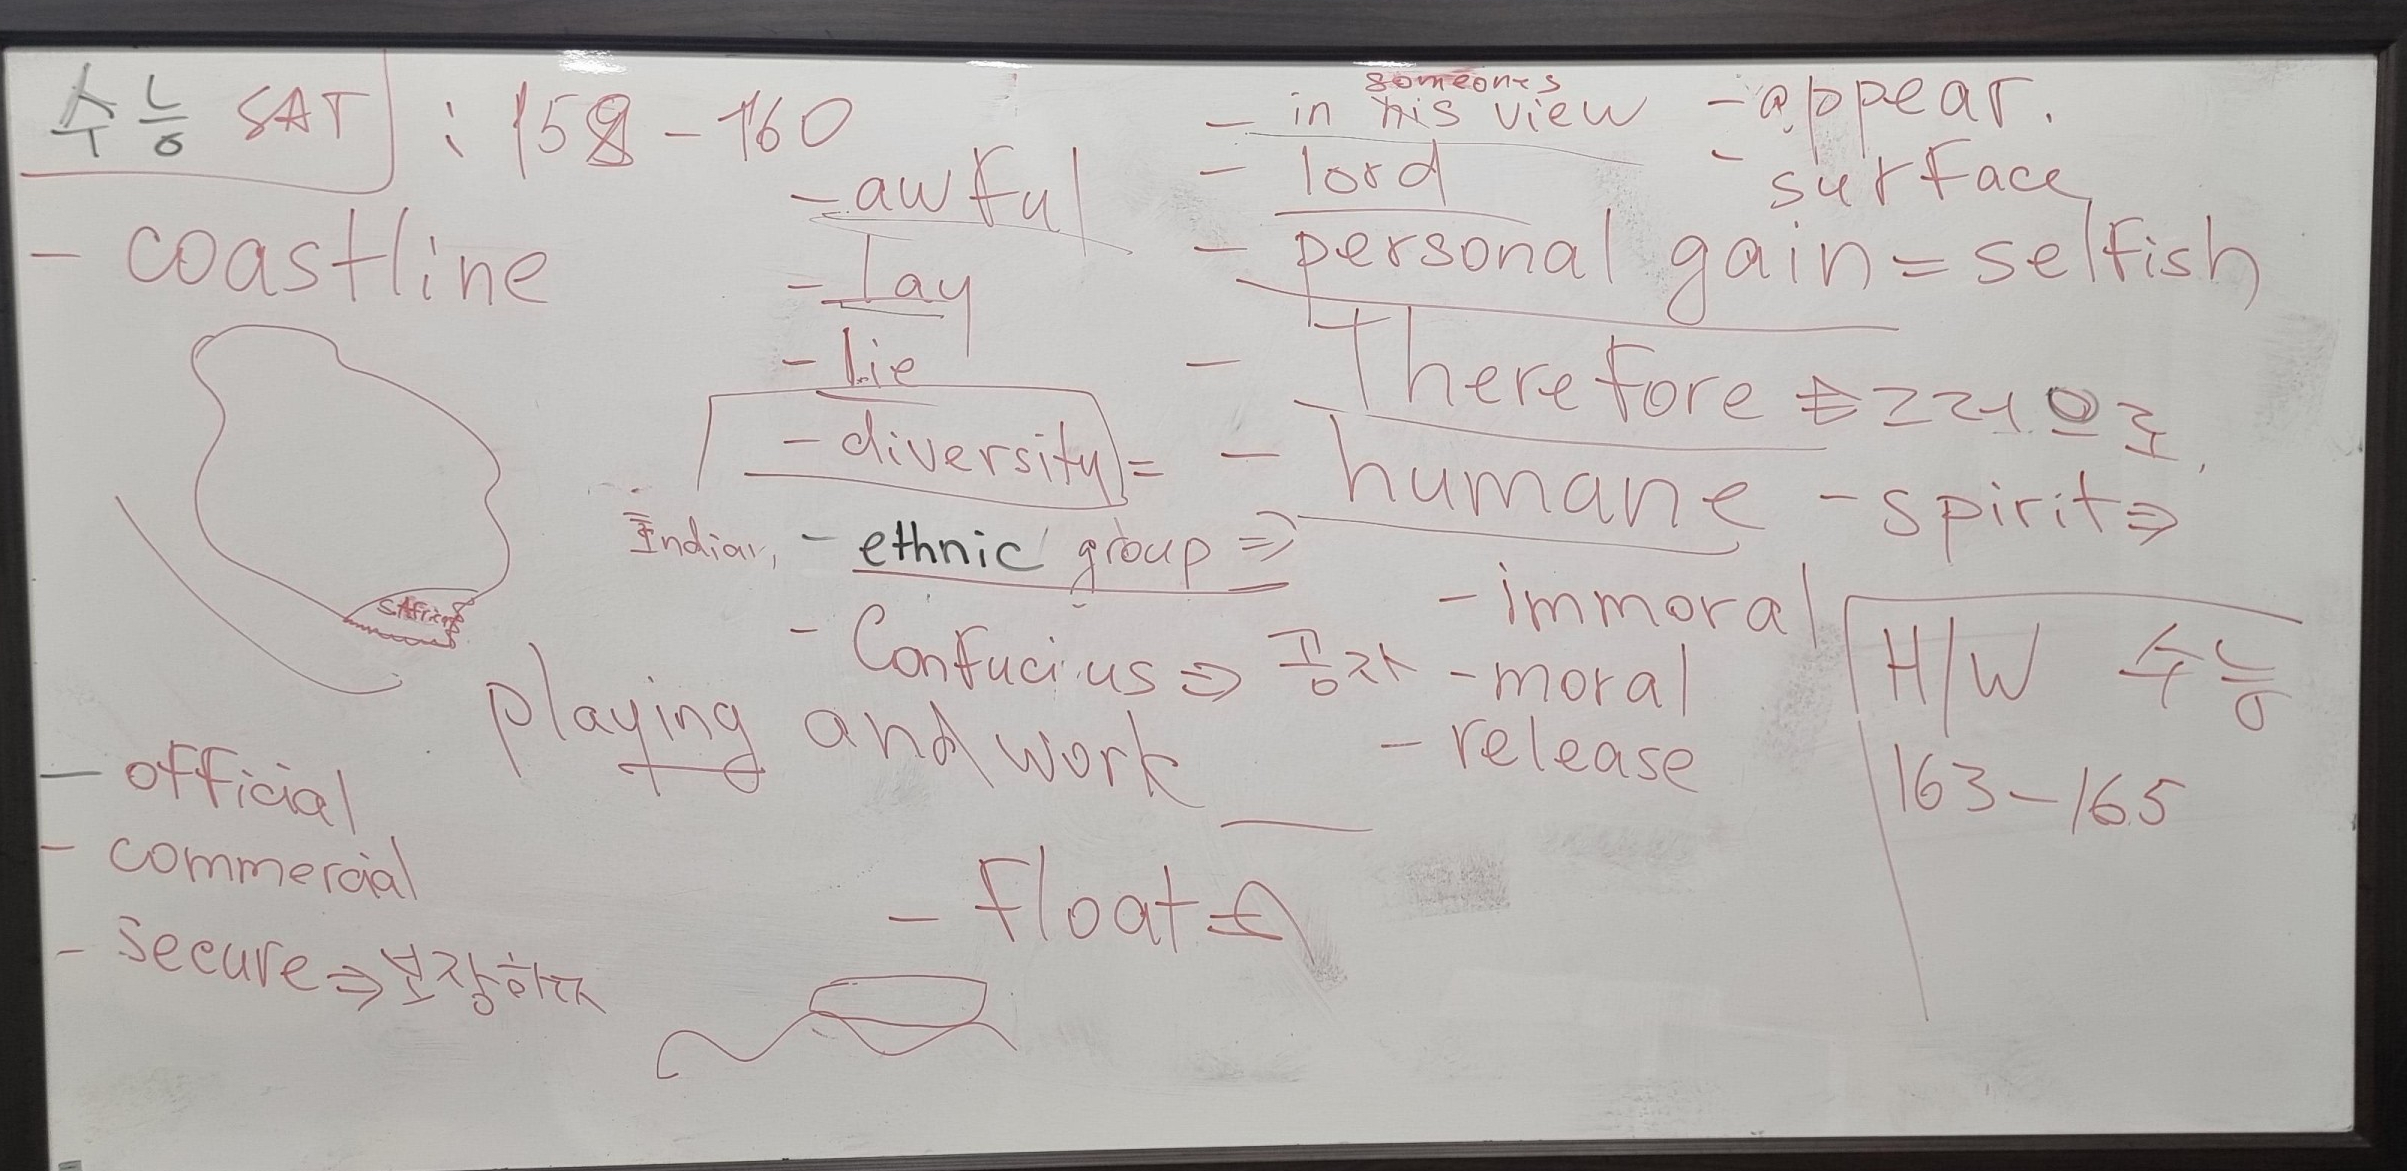 수능 SAT : 158 - 160
- coastline
SAfrica
- official
- commercial
- secure ⇒ 보장하다
- awful
- lay
- lie
- diversity =
Indian, - ethnic group ⇒
- Confucius ⇒ 공자
playing and work
- float =
someones
- in his view
- lord
- personal gain = selfish
- Therefore ⇒ 그러므로
- humane
- spirit ⇒
- immoral
- moral
- release
- appear.
- surface
H/W 수능
163-165